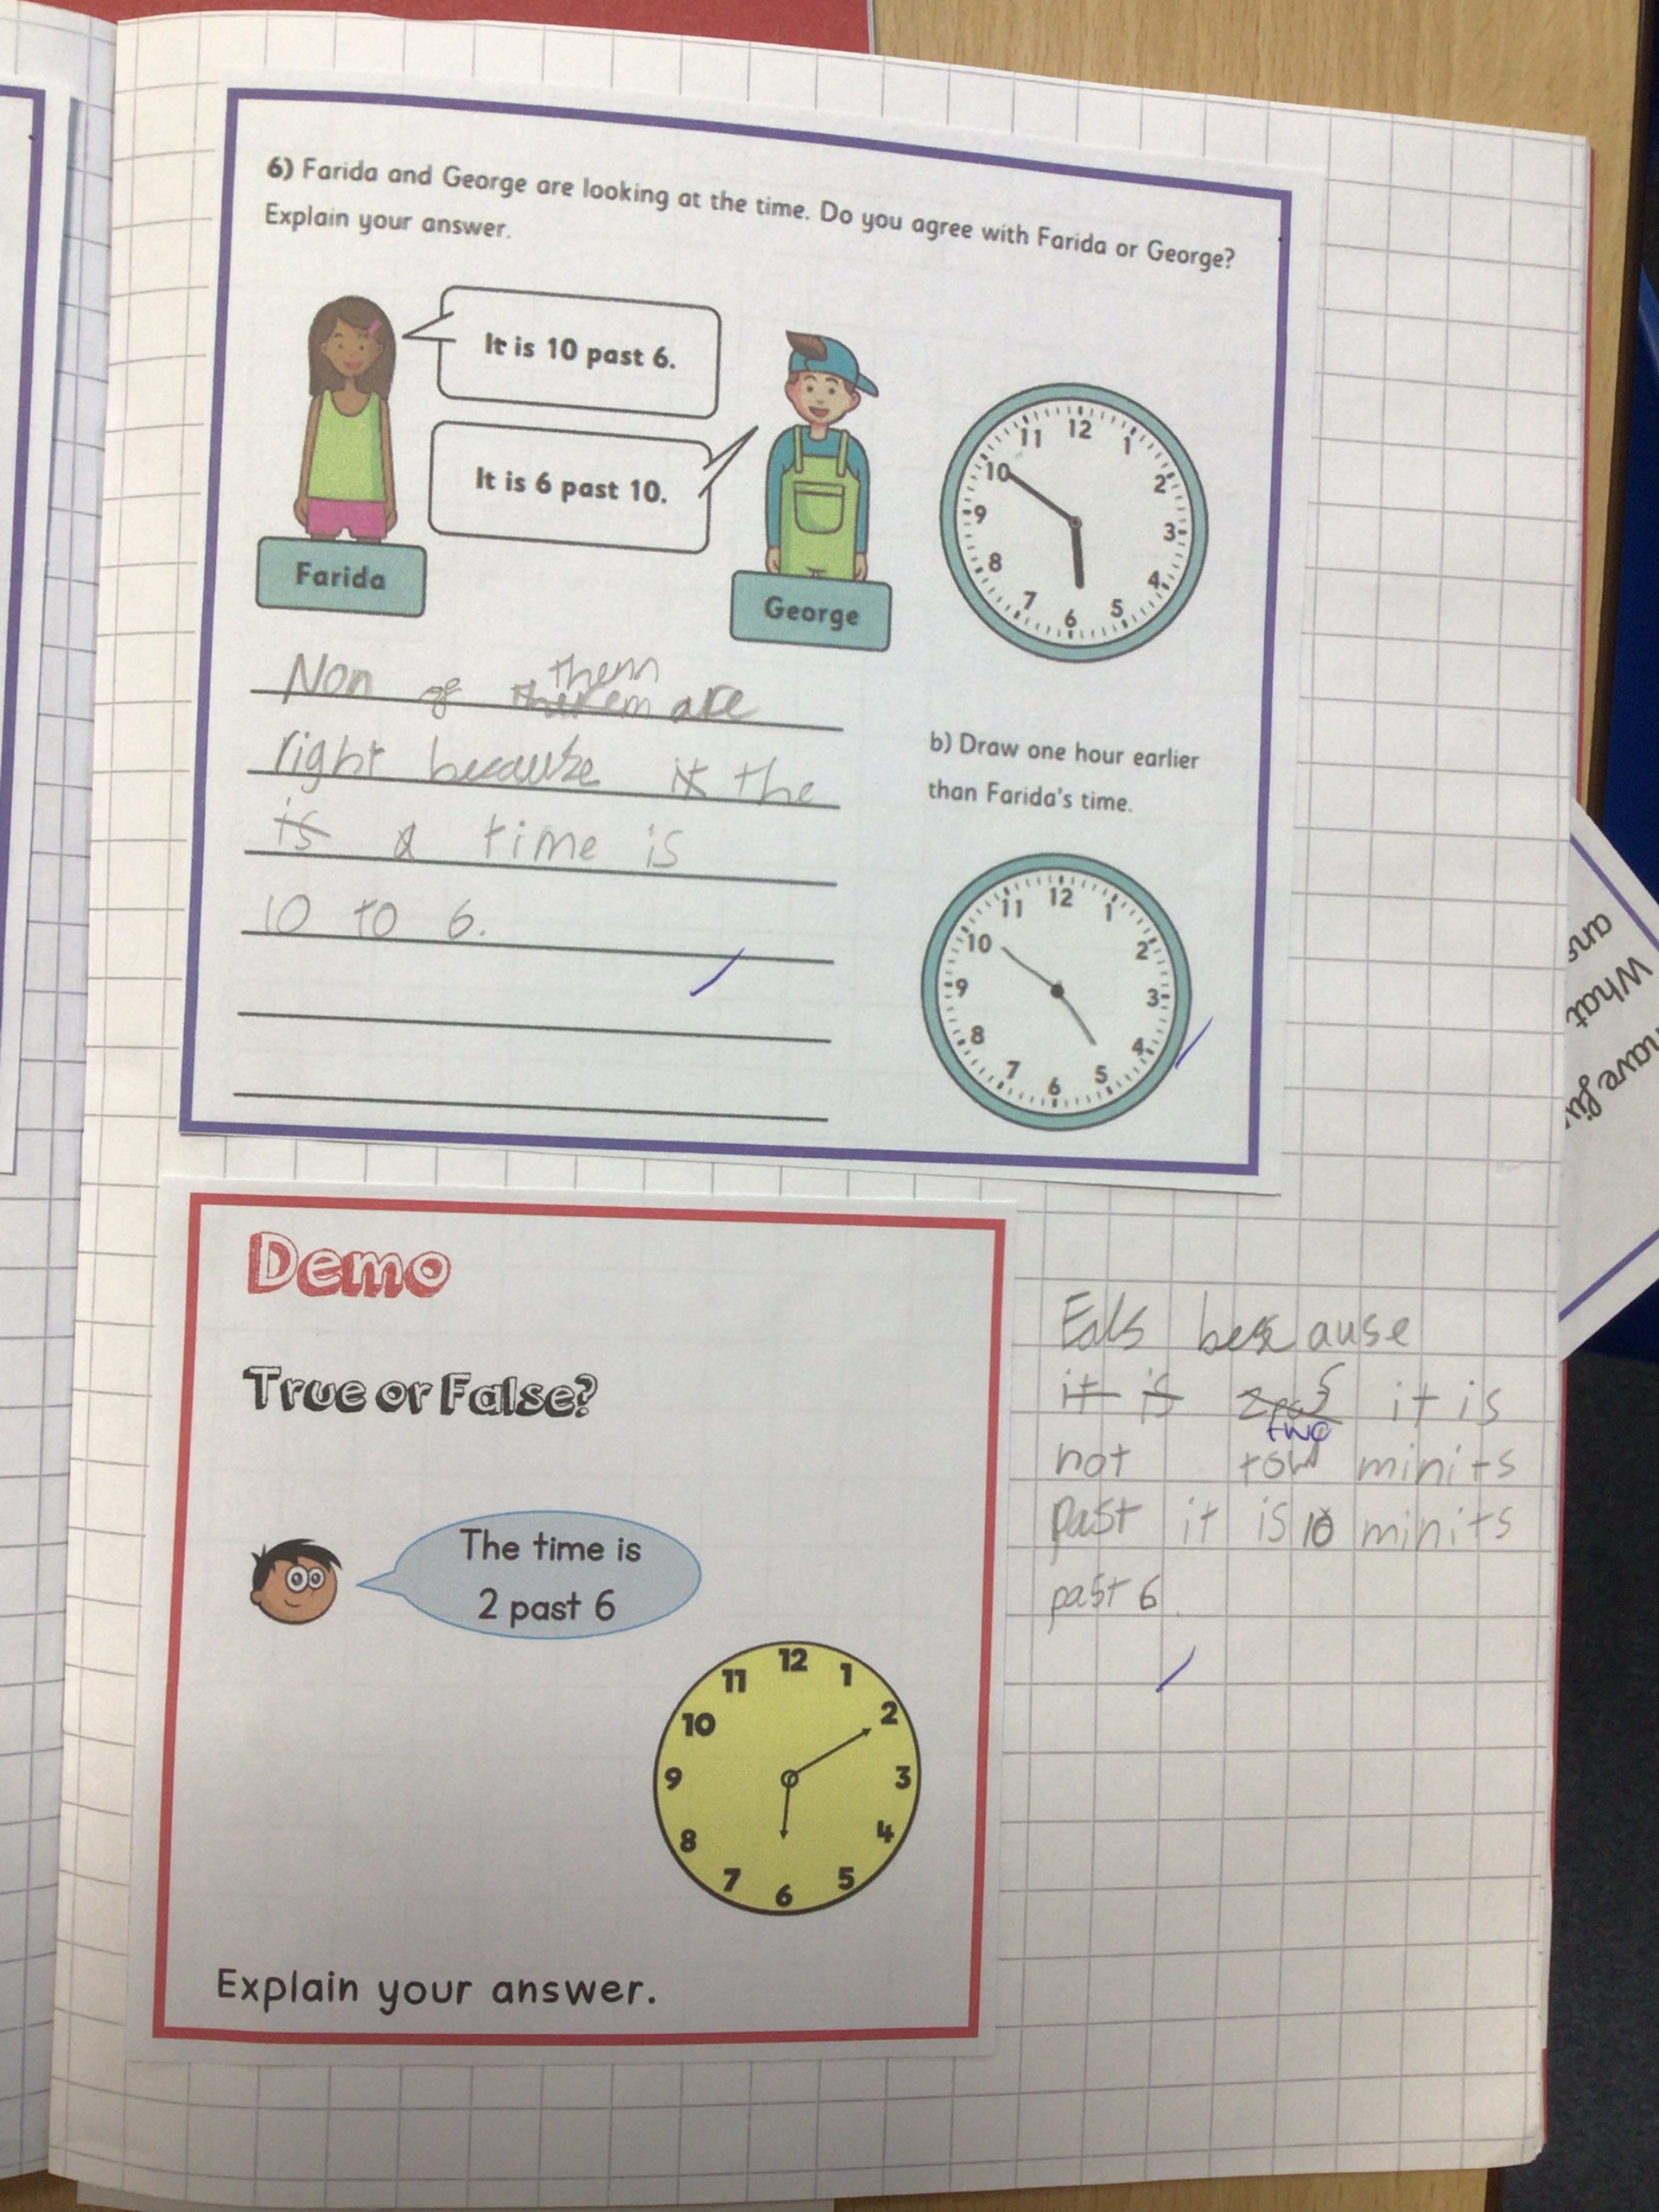 6) Farida and George are looking at the time. Do you agree with Farida or George?
Explain your answer.
It is 10 past 6.
It is 6 past 10.
Farida
George
12
1
2
3
4
5
6
7
8
9
10
11
Non of them are
right because it the
is a time is
10 to 6.
b) Draw one hour earlier
than Farida's time.
12
1
2
3
4
5
6
7
8
9
10
11
Demo
True or False?
The time is
2 past 6
12
1
2
3
4
5
6
7
8
9
10
11
Explain your answer.
Eals because
it is it is
two
not tow minits
past it is 10 minits
past 6.
ans
What
have fi